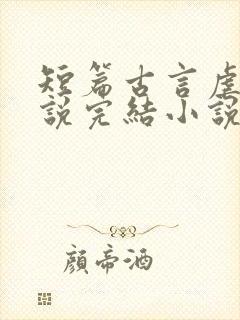 短篇古言虐
説完結小說
顏帝酒